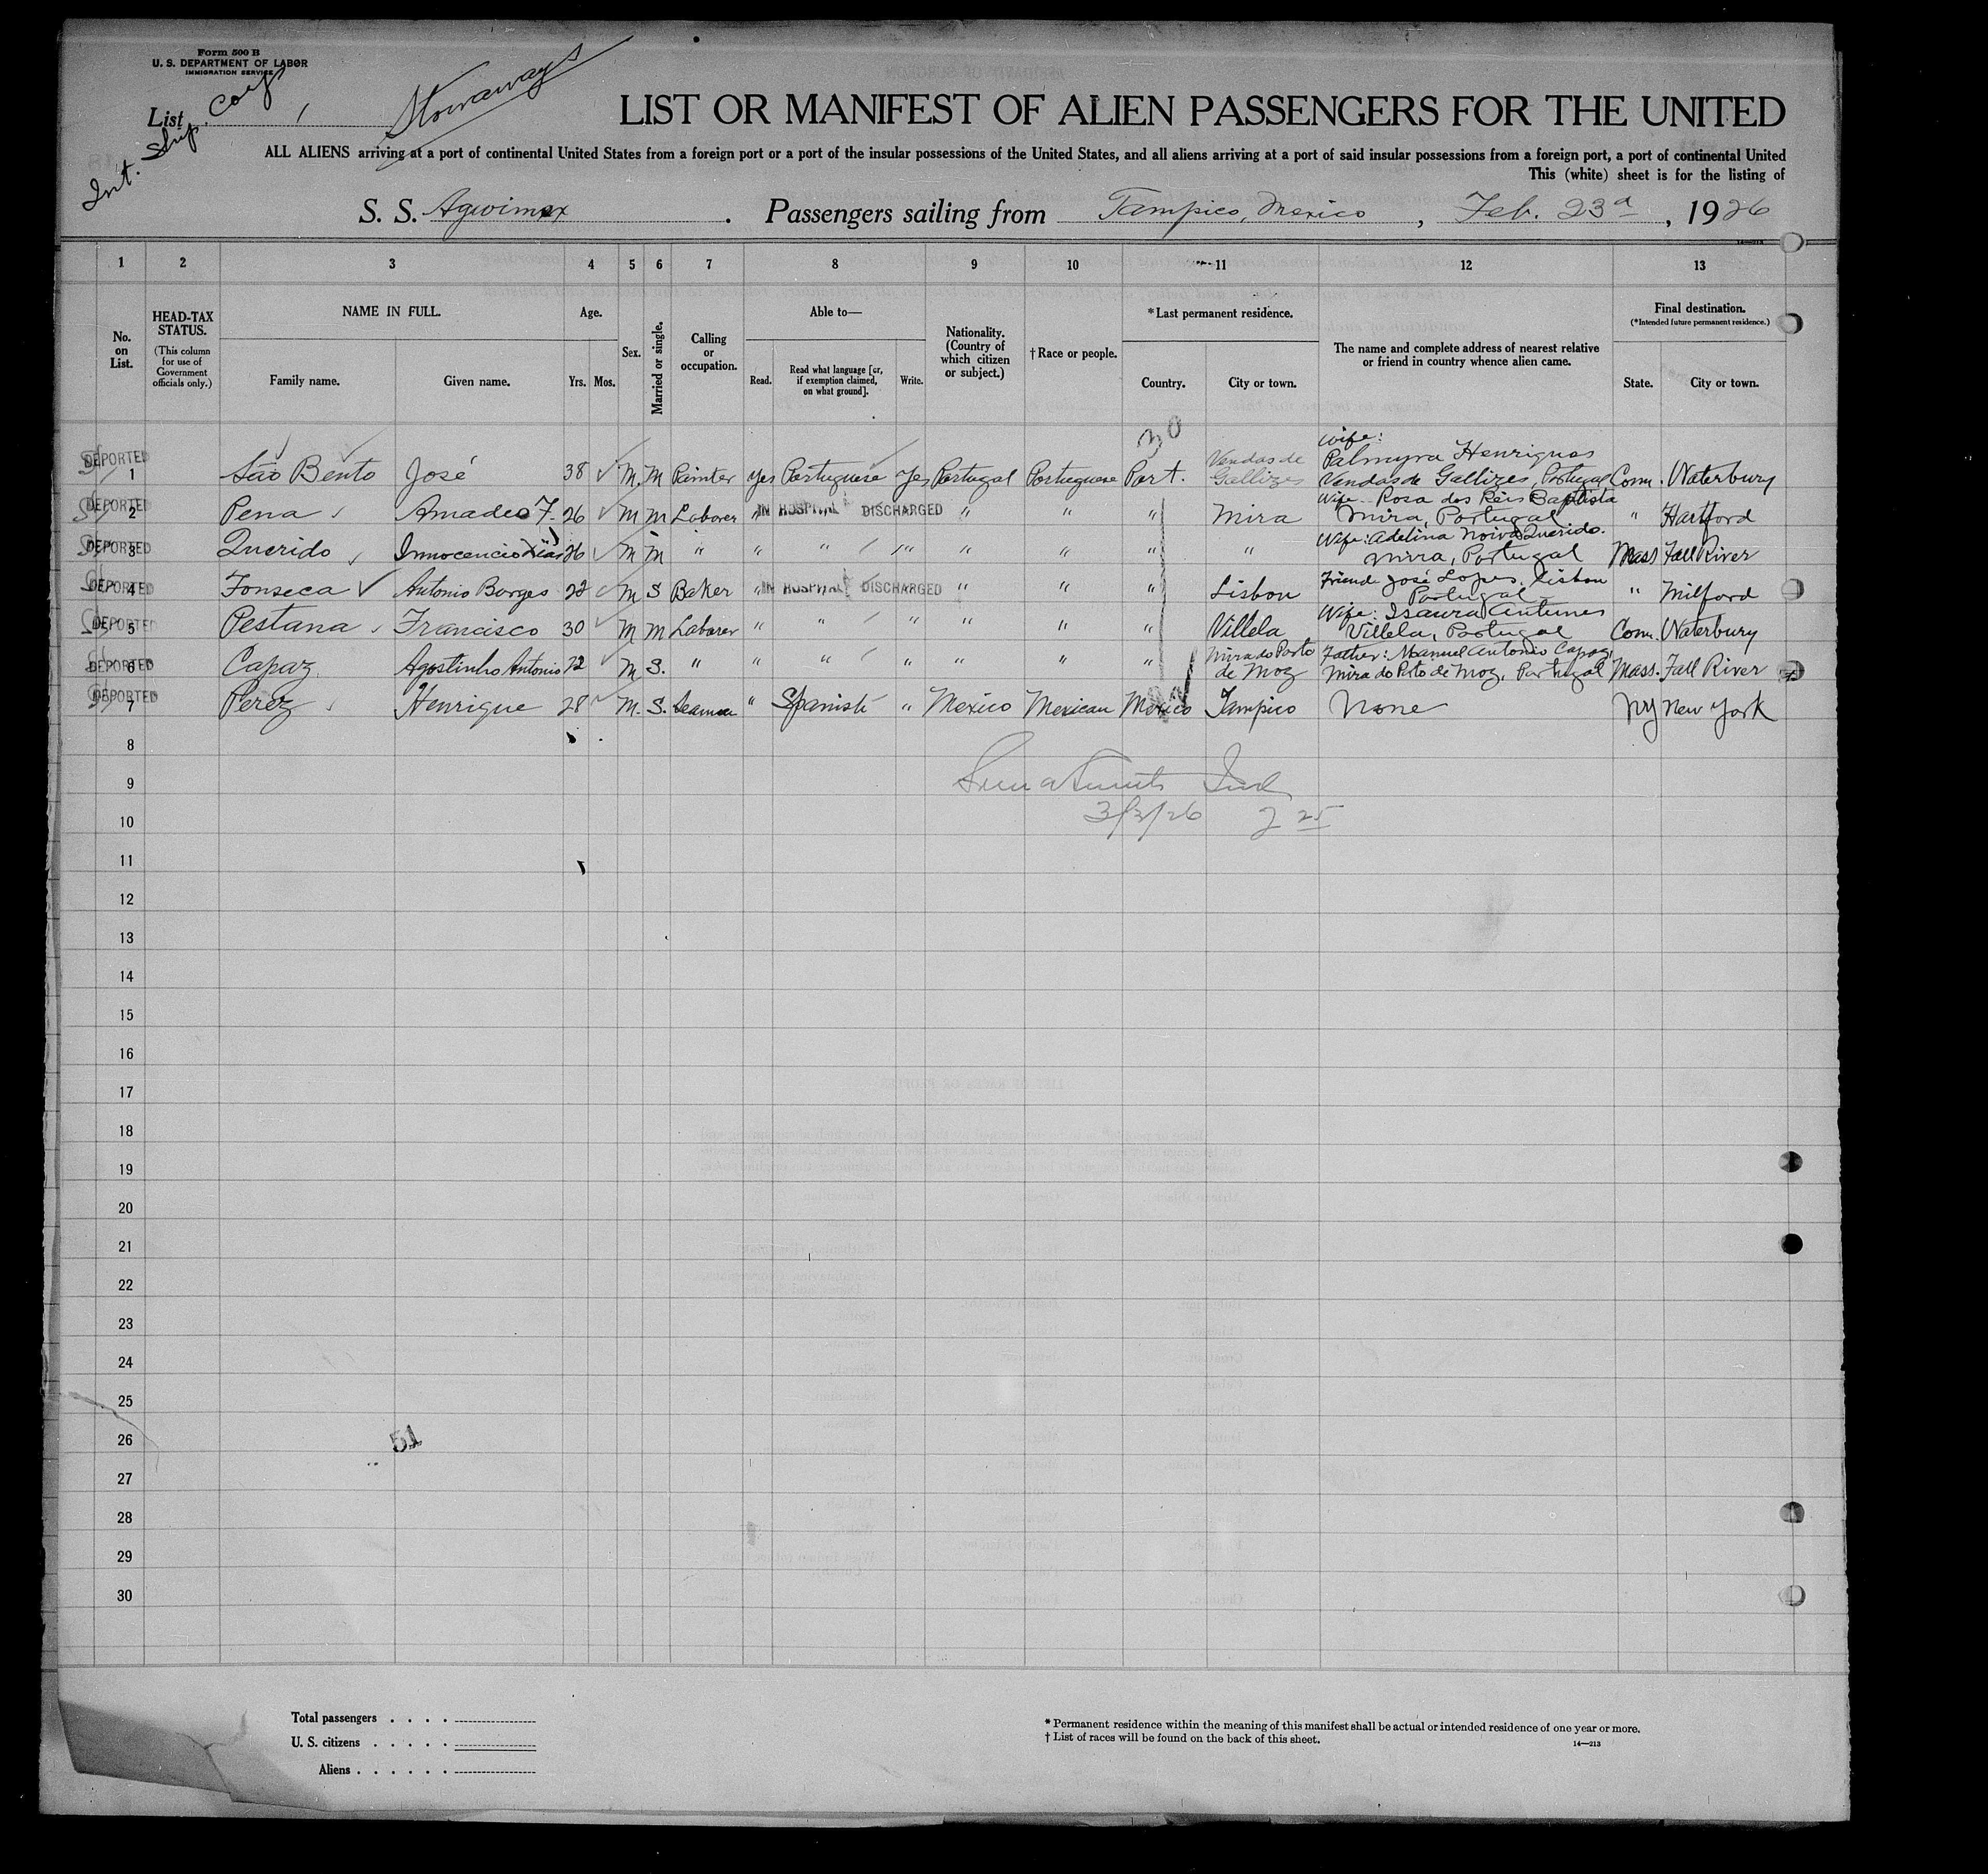 Form 500 B
U. S. DEPARTMENT OF LABOR
IMMIGRATION SERVICE
List 1
Int. Ship. Corp.
Stowaways
LIST OR MANIFEST OF ALIEN PASSENGERS FOR THE UNITED
ALL ALIENS arriving at a port of continental United States from a foreign port or a port of the insular possessions of the United States, and all aliens arriving at a port of said insular possessions from a foreign port, a port of continental United
This (white) sheet is for the listing of
S. S. Agwimex . Passengers sailing from Tampico, Mexico , Feb. 23d , 1926
14—213
1 2 3 4 5 6 7 8 9 10 11 12 13
No. on List.
HEAD-TAX STATUS.
(This column for use of Government officials only.)
NAME IN FULL.
Family name. Given name.
Age.
Yrs. Mos.
Sex.
Married or single.
Calling or occupation.
Able to—
Read. Read what language [or, if exemption claimed, on what ground]. Write.
Nationality. (Country of which citizen or subject.)
† Race or people.
* Last permanent residence.
Country. City or town.
The name and complete address of nearest relative or friend in country whence alien came.
Final destination.
(*Intended future permanent residence.)
State. City or town.
30
DEPORTED 1 São Bento José 38 M. M Painter Yes Portuguese Yes Portugal Portuguese Port. Vendas de Gallizes wife: Palmyra Henriques Vendas de Gallizes, Portugal Conn. Waterbury
DEPORTED 2 Pena Amadeo F. 26 M M Laborer " IN HOSPITAL DISCHARGED " " " Mira Wife Rosa dos Reis Baptista Mira, Portugal " Hartford
DEPORTED 3 Querido Innocencio Dias 26 M M " " " " " " " " Wife: Adelina Noiva Querido. Mira, Portugal Mass Fall River
DEPORTED 4 Fonseca Antonio Borges 22 M S Baker " IN HOSPITAL DISCHARGED " " " Lisbon Friend José Lopes, Lisbon Portugal " Milford
DEPORTED 5 Pestana Francisco 30 M M Laborer " " " " " " Villela Wife: Isaura Antunes Villela, Portugal Conn. Waterbury
DEPORTED 6 Capaz Agostinho Antonio 22 M S. " " " " " " " Mira do Porto de Moz Father: Manuel Antonio Capaz, Mira do Porto de Moz, Portugal Mass. Fall River
DEPORTED 7 Perez Henrique 28 M. S. Seaman " Spanish " Mexico Mexican Mexico Tampico None NY New York
8
9
3/3/26 2 25
10
11
12
13
14
15
16
17
18
19
20
21
22
23
24
25
26
51
27
28
29
30
Total passengers . . . .
U. S. citizens . . . . .
Aliens . . . . . .
* Permanent residence within the meaning of this manifest shall be actual or intended residence of one year or more.
† List of races will be found on the back of this sheet.
14—213